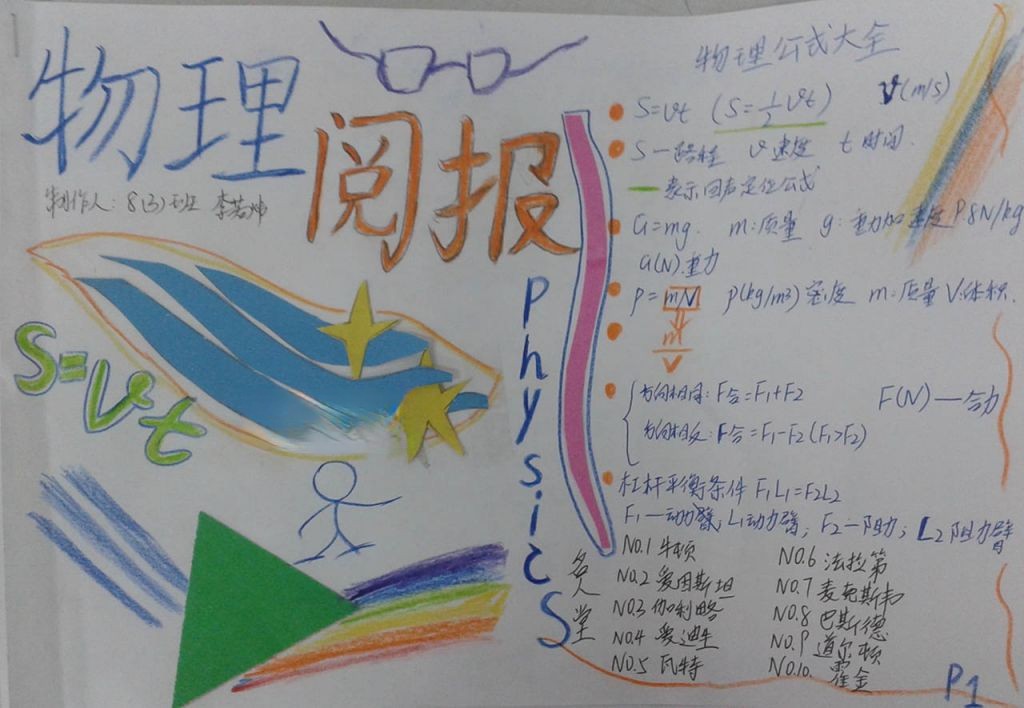 物理
阅报
制作人: 8(3)班 李若帅
S=vt
physics
物理公式大全
S=vt (S=½vt) v(m/s)
S—路程 v速度 t时间.
— 表示回声定位公式
G=mg. m:质量 g:重力加速度 9.8N/kg
G(N).重力
ρ= m/V ρ(kg/m³)密度 m:质量 V:体积.
m
V
方向相同: F合=F1+F2 F(N)—合力
方向相反: F合=F1-F2 (F1>F2)
杠杆平衡条件 F1L1=F2L2
F1—动力臂, L1动力臂; F2—阻力; L2阻力臂
名人堂
NO.1 牛顿
NO.2 爱因斯坦
NO.3 伽利略
NO.4 爱迪生
NO.5 瓦特
NO.6 法拉第
NO.7 麦克斯韦
NO.8 巴斯德
NO.9 道尔顿
NO.10. 霍金
P1